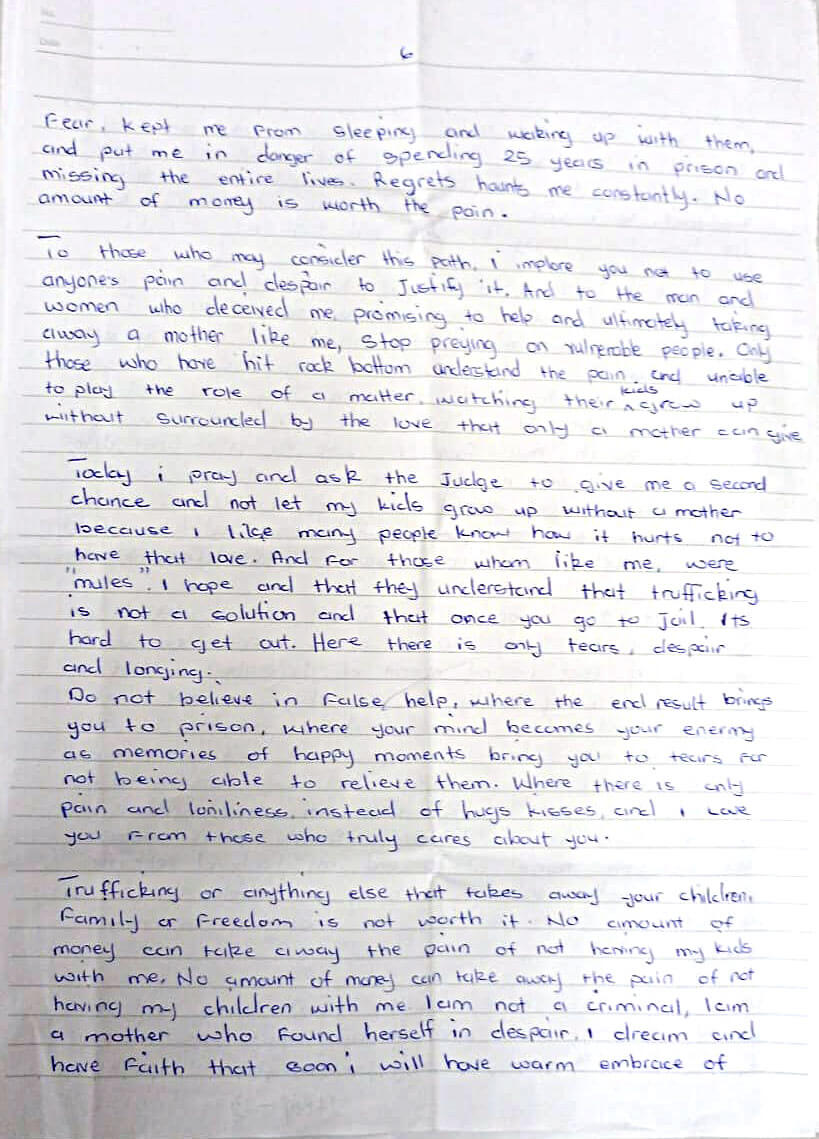 No.
Date
6
Fear, kept me from sleeping and waking up with them,
and put me in danger of spending 25 years in prison and
missing the entire lives. Regrets haunts me constantly. No
amount of money is worth the pain.
To those who may consider this path, i implore you not to use
anyone's pain and despair to Justify it. And to the man and
women who deceived me, promising to help and ultimately taking
away a mother like me, Stop preying on vulnerable people. Only
those who have hit rock bottom understand the pain and unable
to play the role of a matter, watching their kids grow up
without surrounded by the love that only a mother can give
Today i pray and ask the Judge to give me a second
chance and not let my kids grow up without a mother
because i like many people know how it hurts not to
have that love. And for those whom like me, were
"mules". I hope and that they understand that trufficking
is not a solution and that once you go to Jail. Its
hard to get out. Here there is only tears, despair
and longing.
Do not believe in false help, where the end result brings
you to prison, where your mind becomes your enermy
as memories of happy moments bring you to tears for
not being able to relieve them. Where there is only
pain and loniliness, instead of hugs kisses, and i Love
you from those who truly cares about you.
Trufficking or anything else that takes away your children,
family or freedom is not worth it. No amount of
money can take away the pain of not having my kids
with me. No amount of money can take away the pain of not
having my children with me. I am not a criminal, I am
a mother who found herself in despair, i dream and
have faith that soon i will have warm embrace of